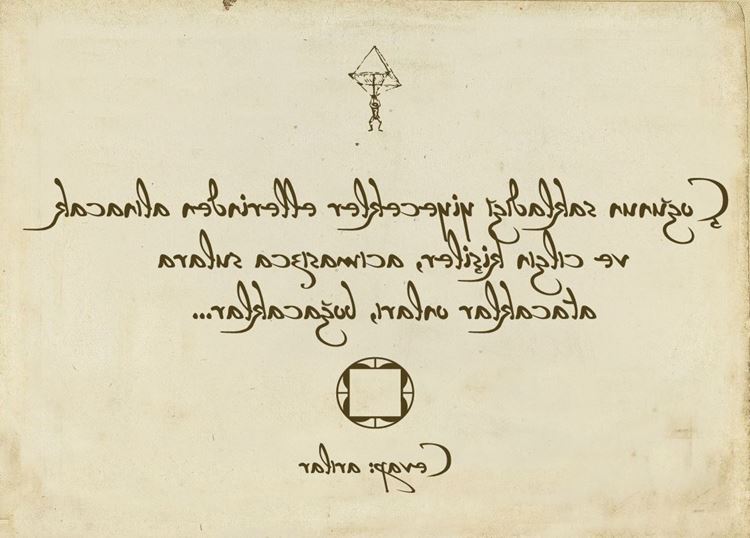 Çoğunun sakladığı yiyecekler ellerinden alınacak
ve cılgın kişiler, acımasızca sulara
atacaklar onları, boğacaklar...
Cevap: arılar